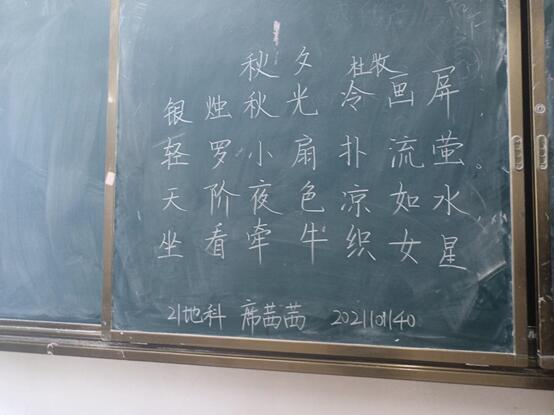 秋夕
杜牧
银烛秋光冷画屏,
轻罗小扇扑流萤。
天阶夜色凉如水,
坐看牵牛织女星
21地科 席茜茜 2021101140